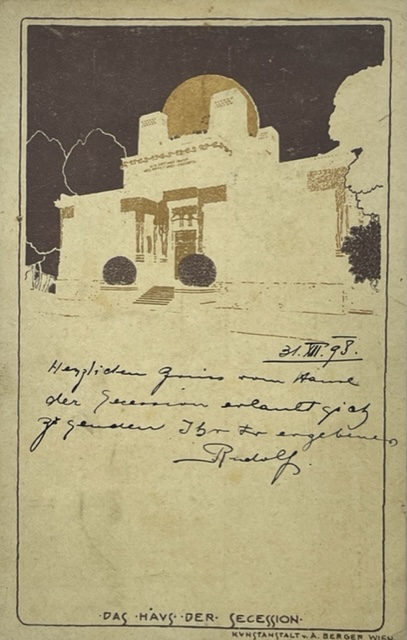 31. XII. 98.
Herzlichen Gruss vom Hause
der Secession erlaubt sich
zu senden Ihr Ihr ergebener
Rudolf.
·DAS·HAVS·DER·SECESSION·
KVNSTANSTALT v. A. BERGER WIEN